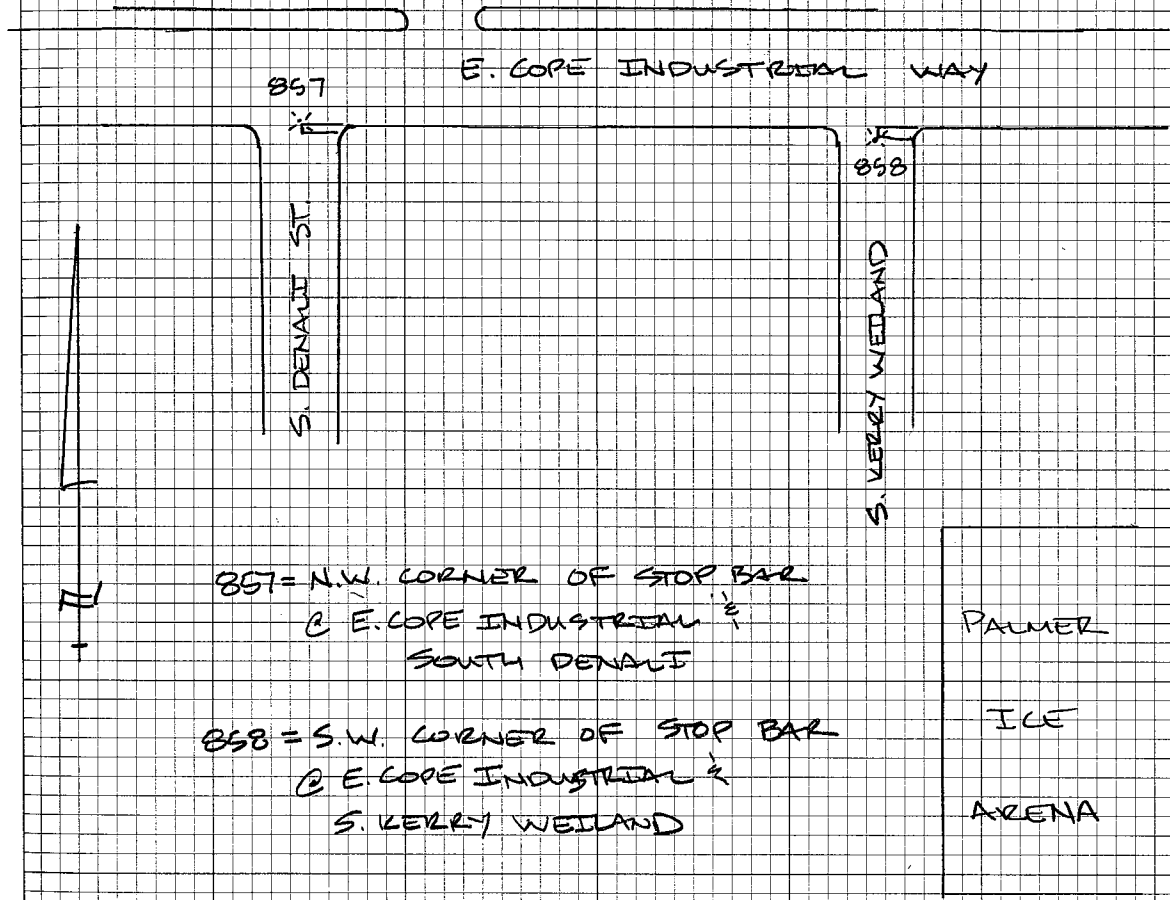 E. COPE INDUSTRIAL WAY
857
858
S. DENALI ST.
S. KERRY WEILAND
857 = N.W. CORNER OF STOP BAR
@ E. COPE INDUSTRIAL &
SOUTH DENALI
858 = S.W. CORNER OF STOP BAR
@ E. COPE INDUSTRIAL &
S. KERRY WEILAND
PALMER
ICE
ARENA